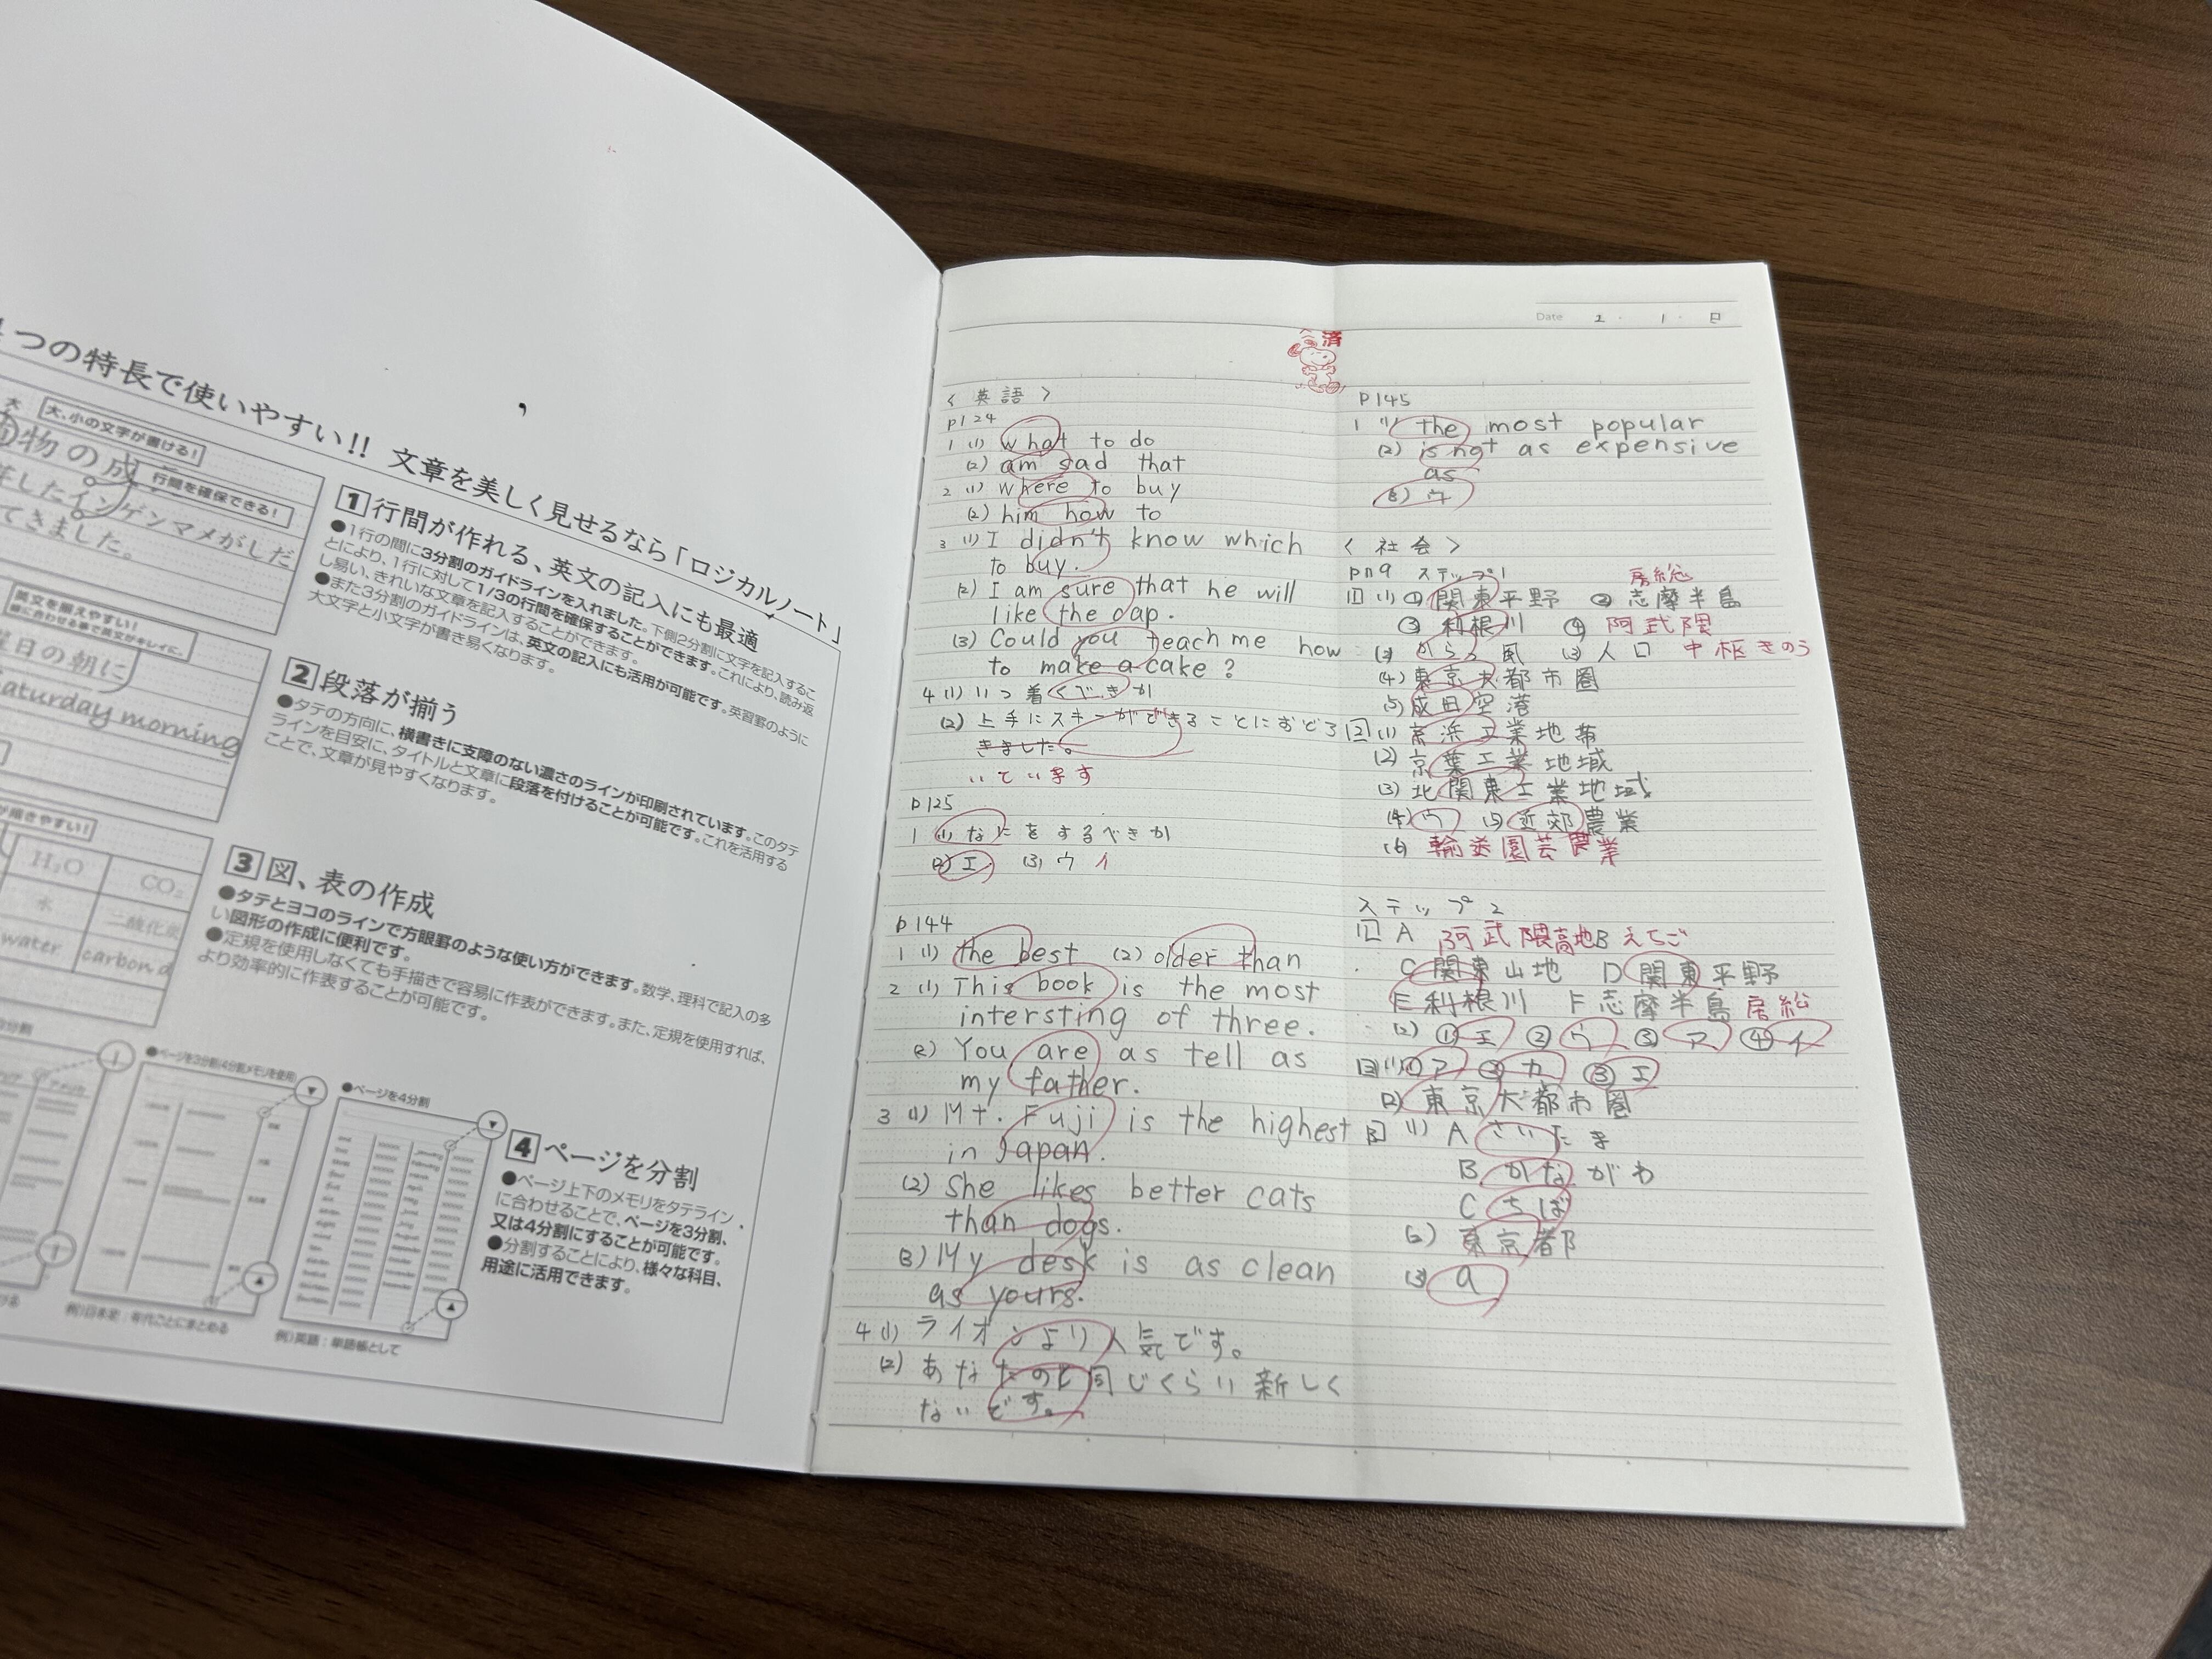 つの特長で使いやすい!! 文章を美しく見せるなら「ロジカルノート」
大
大、小の文字が書ける!
物の成
行間を確保できる!
したインゲンマメがしだ
てきました。
英文を揃えやすい!
日の朝に
aturday morning
H₂O
CO₂
水
二酸化炭
water
carbon d
1 行間が作れる、英文の記入にも最適
●1行の間に3分割のガイドラインを入れました。下側2分割に文字を記入するこ
とにより、1行に対して1/3の行間を確保することができます。これにより、読み返
し易い、きれいな文章を記入することができます。
●また3分割のガイドラインは、英文の記入にも活用が可能です。英習罫のように
大文字と小文字が書き易くなります。
2 段落が揃う
●タテの方向に、横書きに支障のない濃さのラインが印刷されています。このタテ
ラインを目安に、タイトルと文章に段落を付けることが可能です。これを活用する
ことで、文章が見やすくなります。
3 図、表の作成
●タテとヨコのラインで方眼罫のような使い方ができます。数学、理科で記入の多
い図形の作成に便利です。
●定規を使用しなくても手描きで容易に作表ができます。また、定規を使用すれば、
より効率的に作表することが可能です。
●ページを3分割(4分割メモリを使用)
●ページを4分割
例)日本史:年代ごとにまとめる
例)英語:単語帳として
4 ページを分割
●ページ上下のメモリをタテライン
に合わせることで、ページを3分割、
又は4分割にすることが可能です。
●分割することにより、様々な科目、
用途に活用できます。
Date 2 · 1 · 日
済
〈英語〉
p124
1 (1) what to do
(2) am sad that
2 (1) where to buy
(2) him how to
3 (1) I didn't know which
to buy.
(2) I am sure that he will
like the cap.
(3) Could you teach me how
to make a cake?
4 (1) いつ着くべきか
(2) 上手にスキーができることにおどろ
きました。
いています
p125
1 (1) なにをするべきか
(2) エ (3) ウ イ
p144
1 (1) the best (2) older than
2 (1) This book is the most
intersting of three.
(2) You are as tell as
my father.
3 (1) Mt. Fuji is the highest
in Japan.
(2) She likes better cats
than dogs.
(3) My desk is as clean
as yours.
4 (1) ライオンより人気です。
(2) あなたのと同じくらい新しく
ないです。
p145
1 (1) the most popular
(2) is not as expensive
as
(3) ウ
〈社会〉
p119 ステップ1
房総
1 (1) ① 関東平野 ② 志摩半島
③ 利根川 ④ 阿武隈
(2) からっ風 (3) 人口 中枢きのう
(4) 東京大都市圏
(5) 成田空港
2 (1)京浜工業地帯
(2) 京葉工業地域
(3) 北関東工業地域
(4) ウ (5) 近郊農業
(6) 輸送園芸農業
ステップ2
1 A 阿武隈高地 B えちご
C 関東山地 D 関東平野
E 利根川 F 志摩半島 房総
(2) ① エ ② ウ ③ ア ④ イ
2 (1) ① ア ② カ ③ エ
(2) 東京大都市圏
3 (1) A さいたま
B かながわ
C ちば
(2) 東京都
(3) a